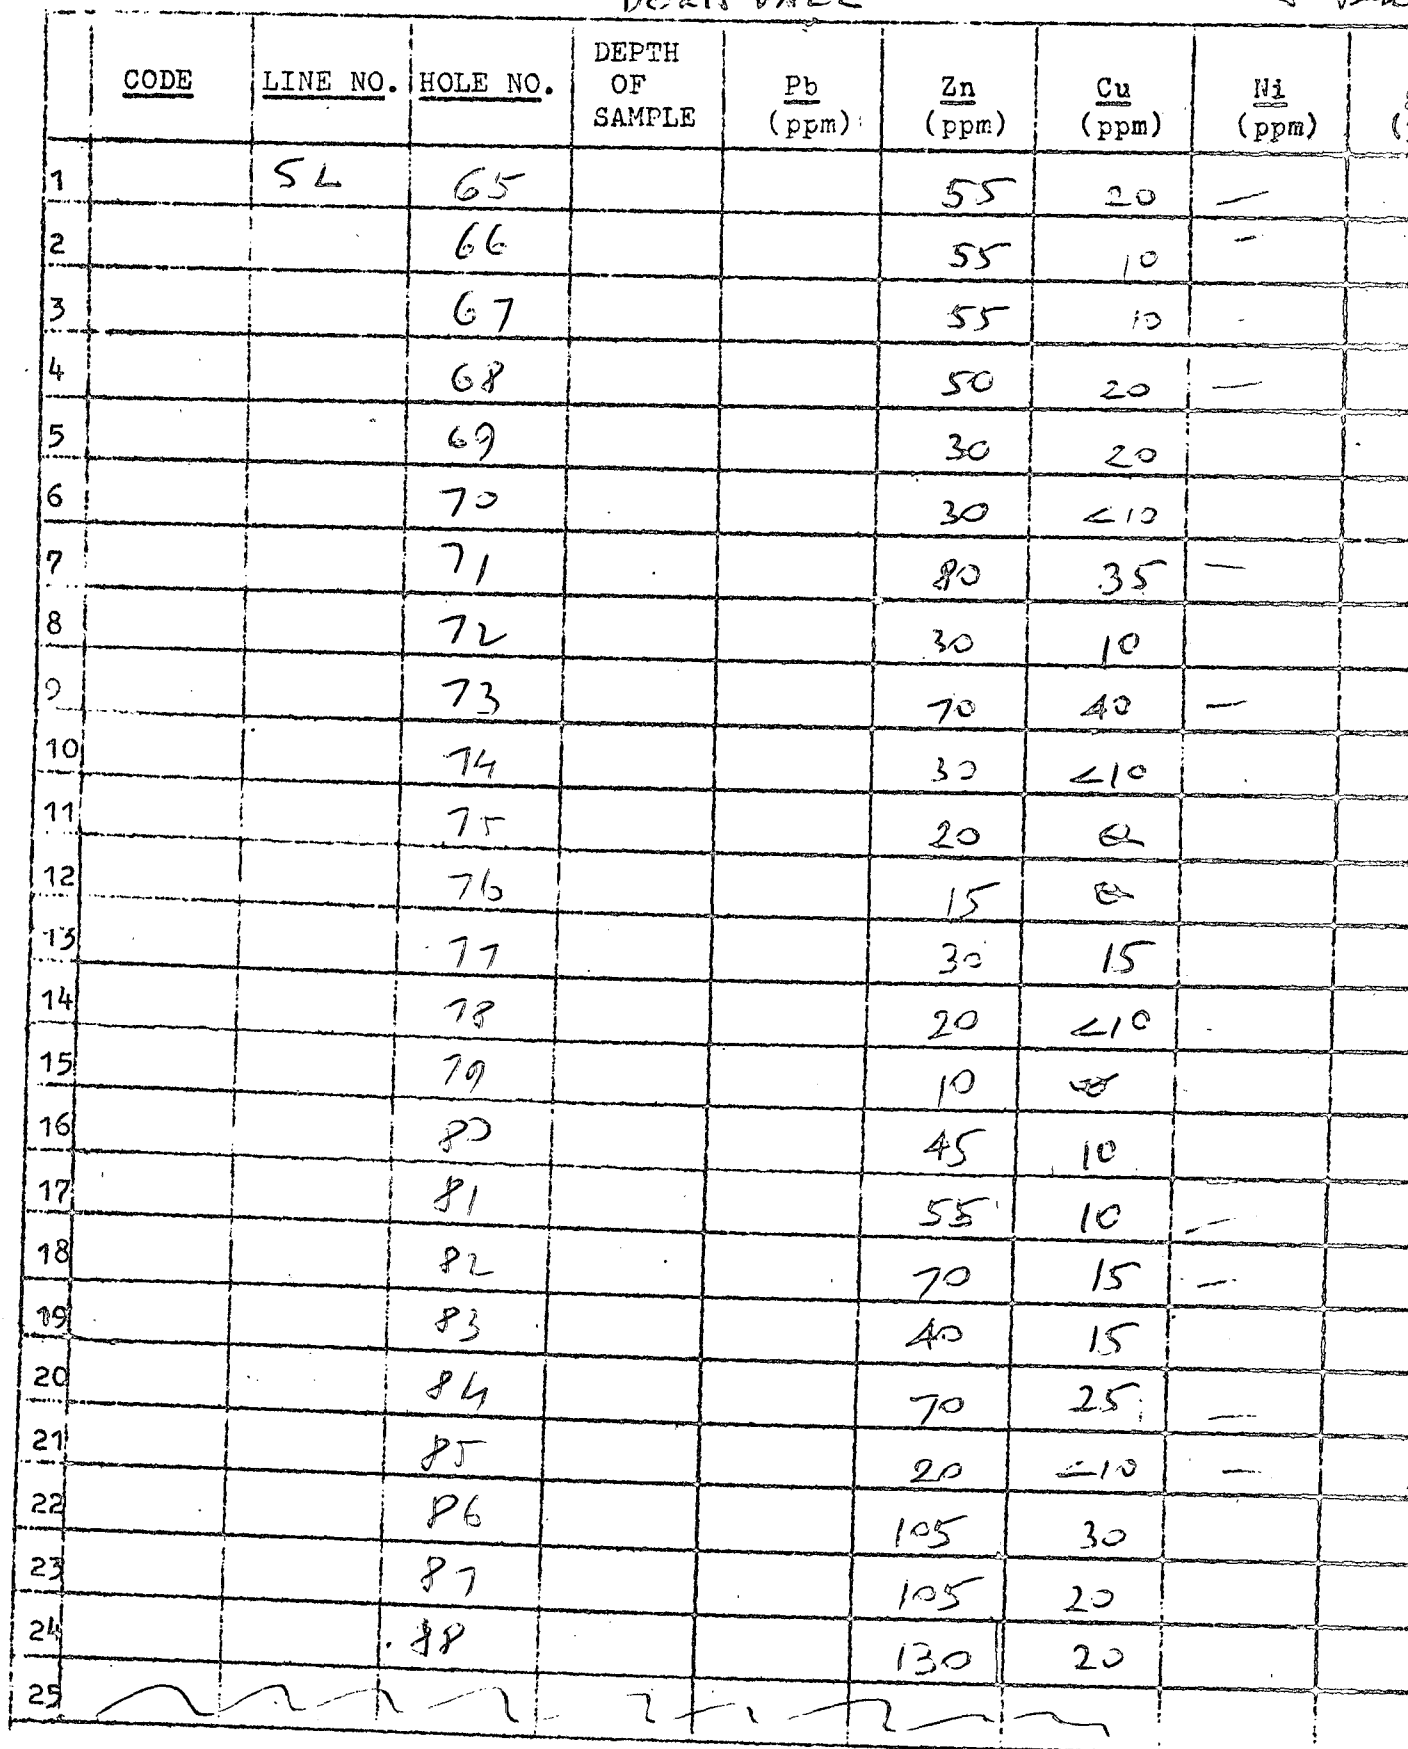 CODE LINE NO. HOLE NO. DEPTH OF SAMPLE Pb (ppm) Zn (ppm) Cu (ppm) Ni (ppm)
1 5L 65 55 20 —
2 66 55 10 -
3 67 55 10
4 68 50 20 —
5 69 30 20
6 70 30 <10
7 71 80 35 —
8 72 30 10
9 73 70 40 —
10 74 30 <10
11 75 20
12 76 15
13 77 30 15
14 78 20 <10
15 79 10
16 80 45 10
17 81 55 10 —
18 82 70 15 —
19 83 40 15
20 84 70 25 —
21 85 20 <10 —
22 86 105 30
23 87 105 20
24 88 130 20
25